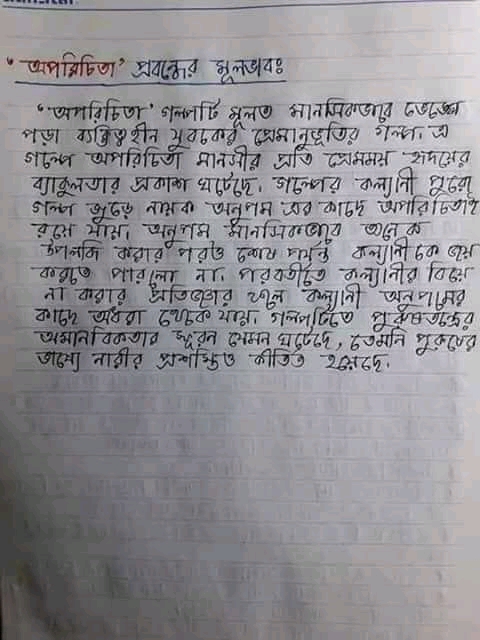 "অপরিচিতা" প্রবন্ধের মূলভাবঃ
"অপরিচিতা" গল্পটি মূলত মানসিকভাবে ভেঙ্গে
পড়া ব্যক্তিত্বহীন যুবকের প্রেমানুভূতির গল্প. এ
গল্পে অপরিচিতা মানসীর প্রতি প্রেমময় হৃদয়ের
ব্যাকুলতার প্রকাশ ঘটেছে. গল্পের কল্যানী পুরো
গল্প জুড়ে নায়ক অনুপম এর কাছে অপরিচিতাই
রয়ে যায়. অনুপম মানসিকভাবে অনেক
উপলব্ধি করার পরও শেষ পর্যন্ত কল্যানীকে জয়
করতে পারলো না. পরবর্তীতে কল্যানীর বিয়ে
না করার প্রতিজ্ঞার ফলে কল্যানী অনুপমের
কাছে অধরা থেকে যায়. গল্পটিতে পুরুষতন্ত্রের
অমানবিকতার স্ফুরন যেমন ঘটেছে, তেমনি পুরুষের
ভাষ্যে নারীর প্রশস্তিও কীর্তিত হয়েছে.